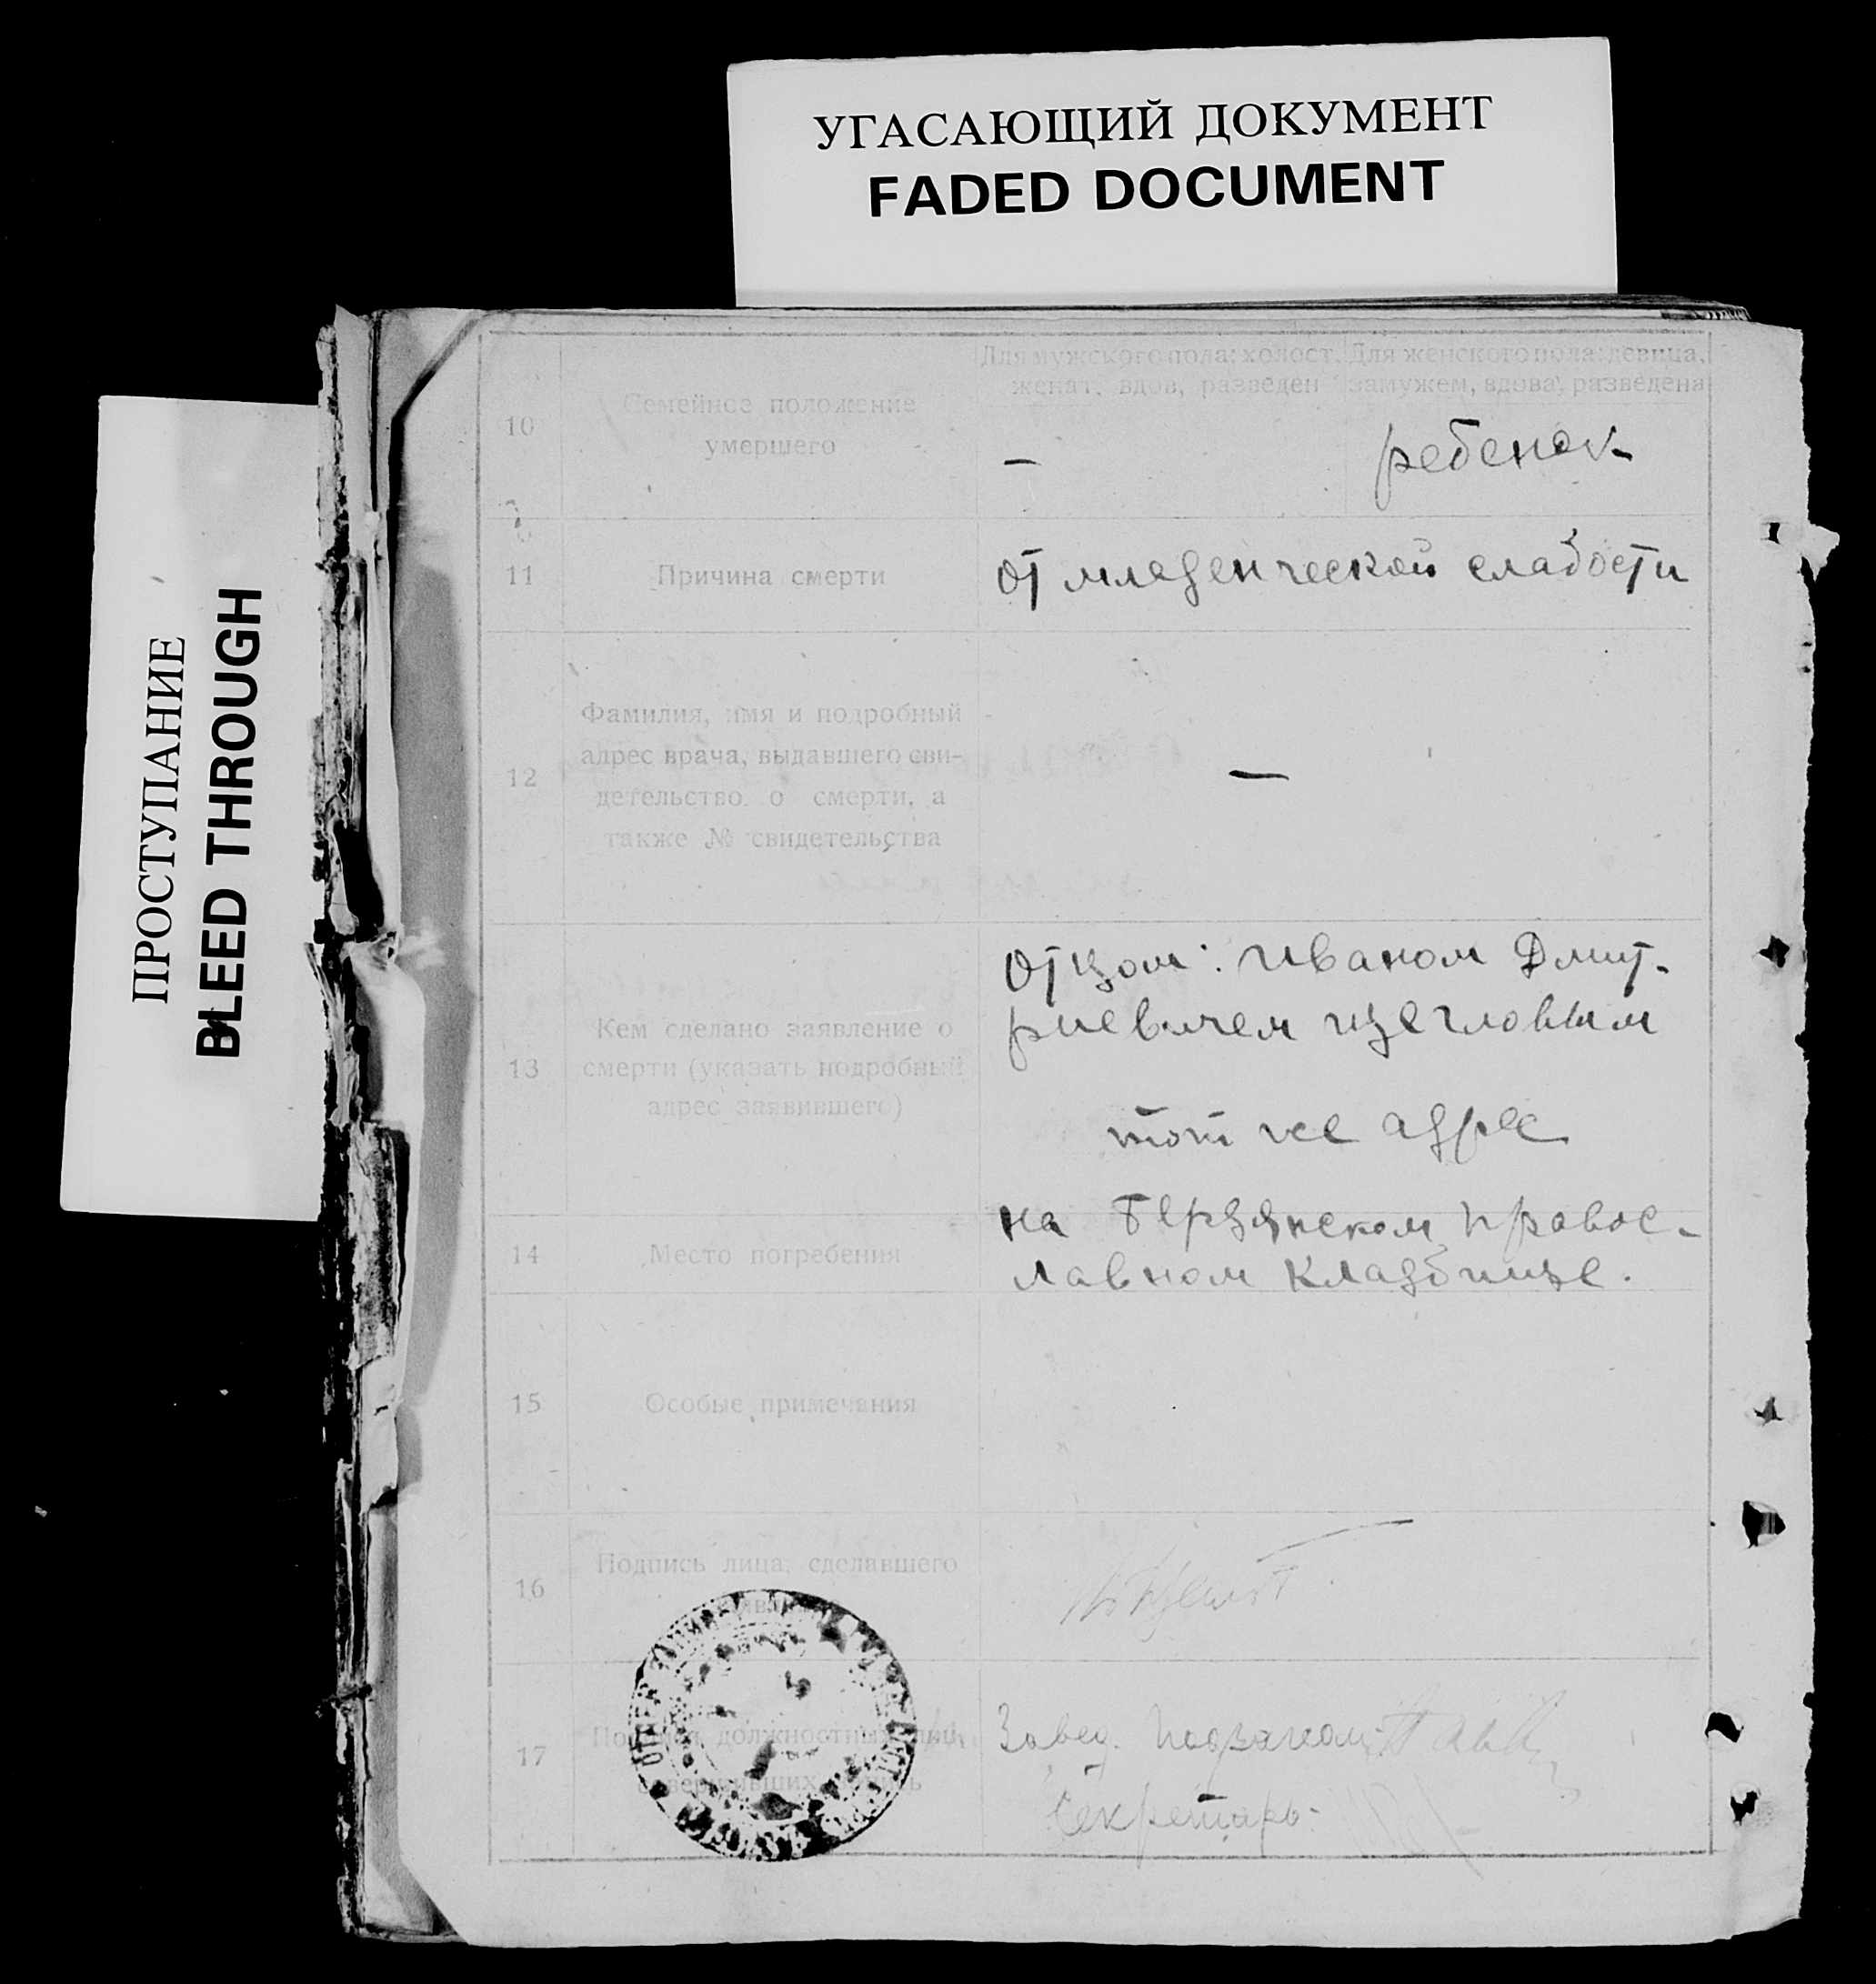 УГАСАЮЩИЙ ДОКУМЕНТ
FADED DOCUMENT
ПРОСТУПАНИЕ
BLEED THROUGH
10
Семейное положение
умершего
Для мужского пола: холост,
женат, вдов, разведен
Для женского пола: девица,
замужем, вдова, разведена
—
ребенок
11
Причина смерти
от младенческой слабости
12
Фамилия, имя и подробный
адрес врача, выдавшего сви-
детельство о смерти, а
также № свидетельства
—
13
Кем сделано заявление о
смерти (указать подробный
адрес заявившего)
Отцом: Иваном Дмит-
риевичем Щегловым
тот же адрес
14
Место погребения
на Бердянском правос-
лавном кладбище.
15
Особые примечания
16
Подпись лица, сделавшего
17
должностных лиц,
запись
Завед. Подзагсом
Секретарь